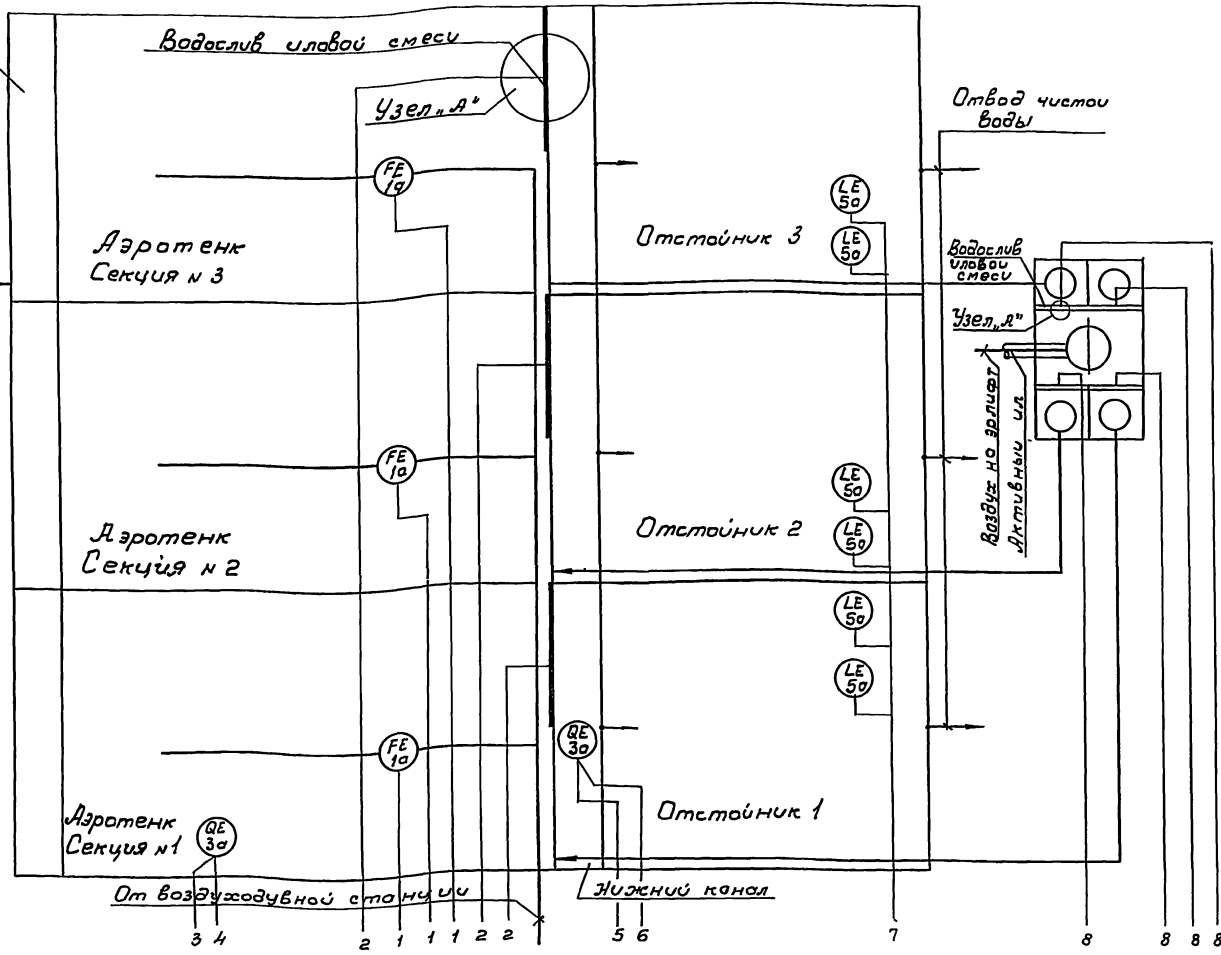 Водослив иловой смеси
Узел „А"
Отвод чистой
воды
FE
1а
LE
5а
LE
5а
Аэротенк
Секция № 3
Отстойник 3
Водослив
иловой
смеси
Узел „А"
Воздух на эрлифт
Активный ил
FE
1а
LE
5а
LE
5а
Аэротенк
Секция № 2
Отстойник 2
LE
5а
LE
5а
FE
1а
QE
3а
Аэротенк
Секция №1
QE
3а
Отстойник 1
От воздуходувной станции
Нижний канал
3 4 2 1 1 1 2 2 5 6 7 8 8 8 8